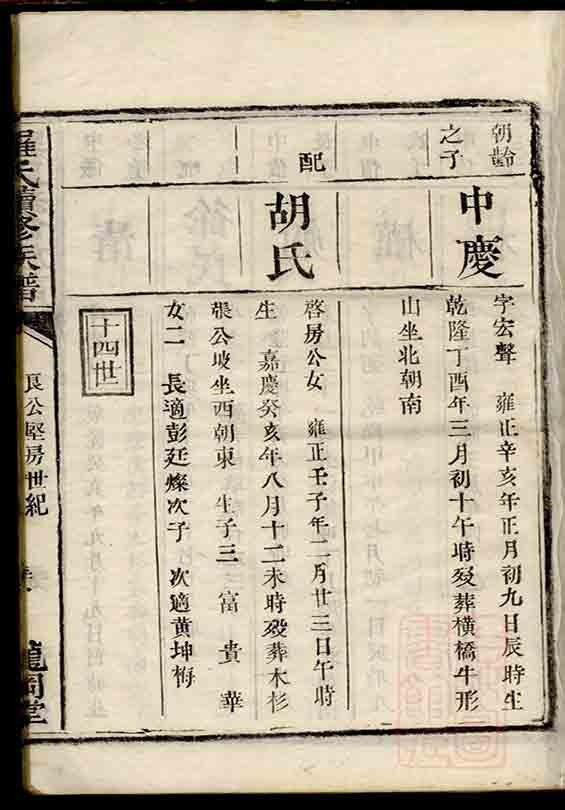 朝齡
之子
中慶
字宏聲 雍正辛亥年正月初九日辰時生
乾隆丁酉年三月初十午時歿葬橫橋牛形
山坐北朝南
配
胡氏
啓房公女 雍正壬子年二月廿三日午時
生 嘉慶癸亥年八月十二未時歿葬木杉
張公坡坐西朝東 生子三 富 貴 華
女二 長適彭廷燦次子 次適黃坤栴
十四世
羅氏續修族譜
良公堅房世紀
龍岡堂